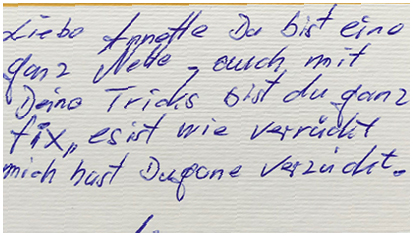 Liebe Annette Du bist eine
ganz Nette, auch mit
Deine Tricks bist du ganz
fix, es ist wie verrückt
mich hast Du verzückt.